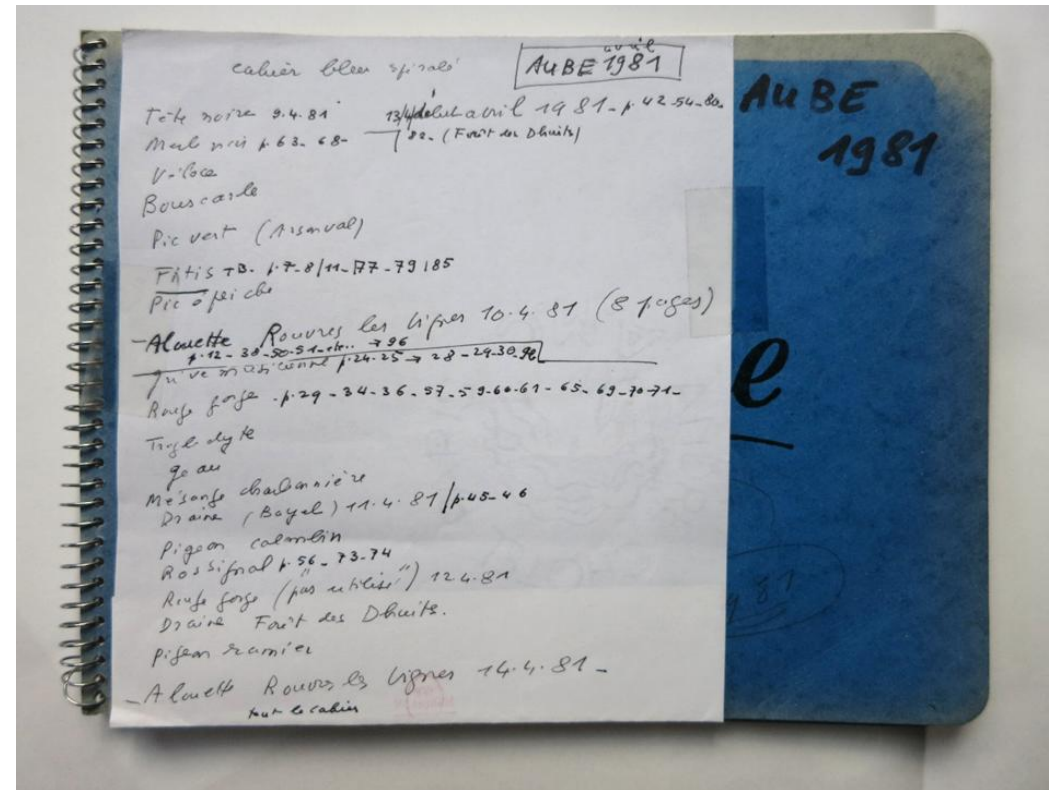 cahier bleu spiralé
avril
AUBE 1981
Tête noire 9.4.81 13/4/début avril 1981 - p. 42-54-80-
Merle noir p. 63-68- 82- (Forêt des Dhuits)
Véloce
Bouscarle
Pic vert (Arsonval)
Fitis TB- p. 7-8/11-77-79 185
Pic épeiche
-Alouette Rouvres les Vignes 10.4.81 (8 pages)
p. 12-38-50-51-etc.. → 96
Grive musicienne p. 24-25 → 28-29-30-
Rouge gorge . p. 29-34-36-57-59-60-61-65-69-70-71-
Troglodyte
geai
Mésange charbonnière
Draine (Bayel) 11.4.81/p. 45-46
Pigeon colombin
Rossignol p. 56-73-74
Rouge gorge ("pas utilisé") 12.4.81
Draine Forêt des Dhuits.
Pigeon ramier
-Alouette Rouvres les Vignes 14.4.81-
tout le cahier
AUBE
1981
e
81